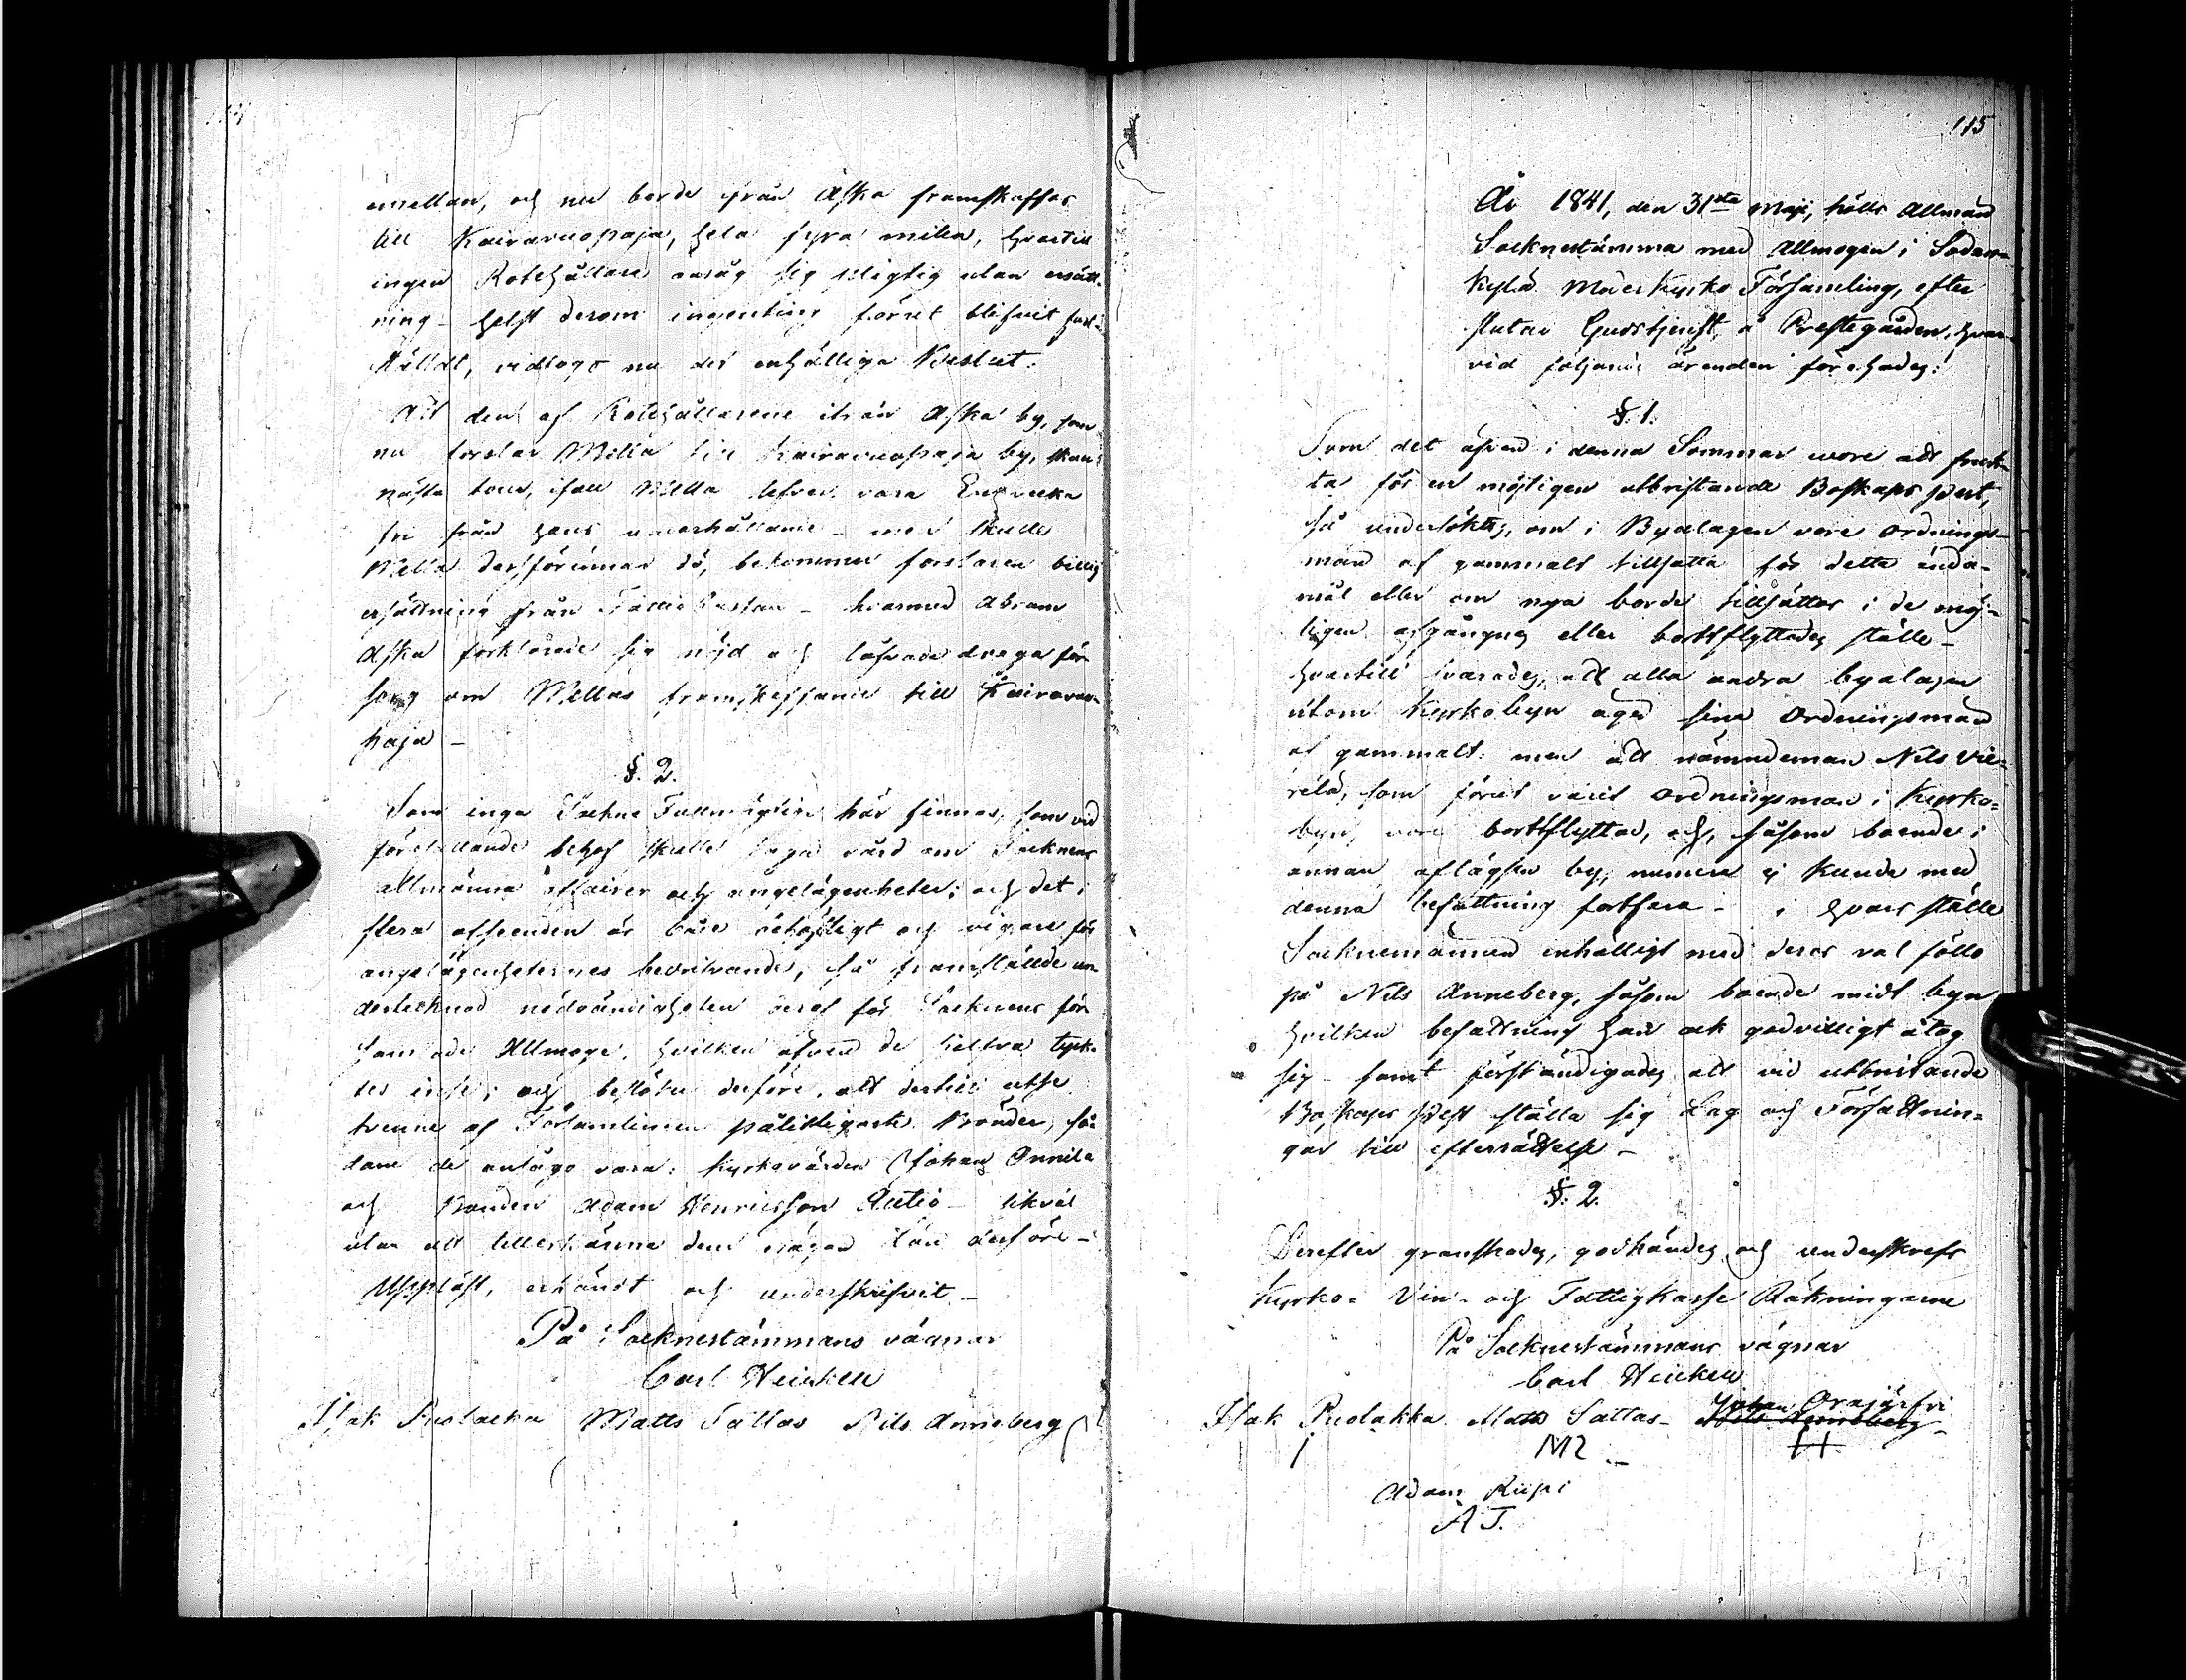 emellan, och nu borde ifrån Aska framskaffas
till Kairavuopaja, hela fyra milen, hvartill
ingen Rotehållare ansåg sig pligtig utan ersätt-
ning helst derom ingenting förut blifvit fast-
ställdt, vidtogs nu det enhälliga Beslut:
Att den af Rotehållarene ifrån Aska by, som
nu forslar Mella till Kairavuopaja by, skau
nästa tour, ifall Mella lefver, vara En vecka
fri från hans underhållande men skulle
Mella dessförinnan dö, bekommer forslaren billig
ersättning från Fattig Cassan hvarmed Abram
Aska förklarade sig nöjd och lofvade draga för-
sorg om Mellas framskaffande till Kairavuo-
paja
§. 2.
Som inga Sockne Fullmägtige här finnas, som vid
förefallande behof skulle taga vård om Socknens
allmänna affairer och angelägenheter; och det i
flera afseenden är både och vigare för
angelägenheternes bedrifvande, så framställde un-
dertecknad nödvändigheten deraf för Socknens för-
samlade Allmoge, hvilken äfven de sielfva tyck-
tes inse; och beslöto derföre, att dertill utse
tvenne af Församlingens pålitligaste Bönder, så-
dane de ansågo vara: Kyrkovärden Johan Onnila
och Bonden Adam Henricsson Autio likväl
utan att tillerkänna dem någon Lön derföre
Uppläst, erkändt och underskrifvit
På Socknestämmans vägnar
Carl Heickell
Isak Puolacka Matts Sattas Nils Anneberg
115
År 1841, den 31sta Maji, hölls Allmän
Socknestämma med Allmogen i Sodan-
kylä Moder Kyrko Församling, efter
slutad Gudstjenst, å Prestegården, hvar-
vid följande ärenden förehades:
§. 1.
Som det äfven i denna Sommar wore att fruk-
ta för en möjligen utbristande Boskaps pest,
så undersöktes, om i Byalagen vore ordnings-
män af gammalt tillsatta för detta ända-
mål eller om nya borde tillsättas i de möj-
ligen afgångnes eller bortflyttades ställe
hvartill svarades, att alla andra byalagen
utom Kyrkobyn äga sine Ordningsmän
af gammalt: men att nämndeman Nils Vie-
rela, som förut varit ordningsman i Kyrko-
byn, vore bortflyttad, och, såsom boende i
annan aflägsen by, numera ej kunde med
denna befattning fortfara i hvars ställe
Socknemännen enhälligt med deras val föllo
på Nils Anneberg, såsom boende midt i byn
hvilken befattning han ock godvilligt åtog
sig samt förständigades att vid utbristande
Boskaps Pest ställa sig Lag och Författnin-
gar till efterrättelse
§. 2.
Derefter granskades, godkändes och underskrefs
Kyrko- Vin- och Fattigkasse Räkningarne
På Socknestämmans vägnar
Carl Heickell
Johan Orajärfvi
Isak Puolakka Matts Sattas Nils Anneberg
M2 H
Adam Kiipi
A T.